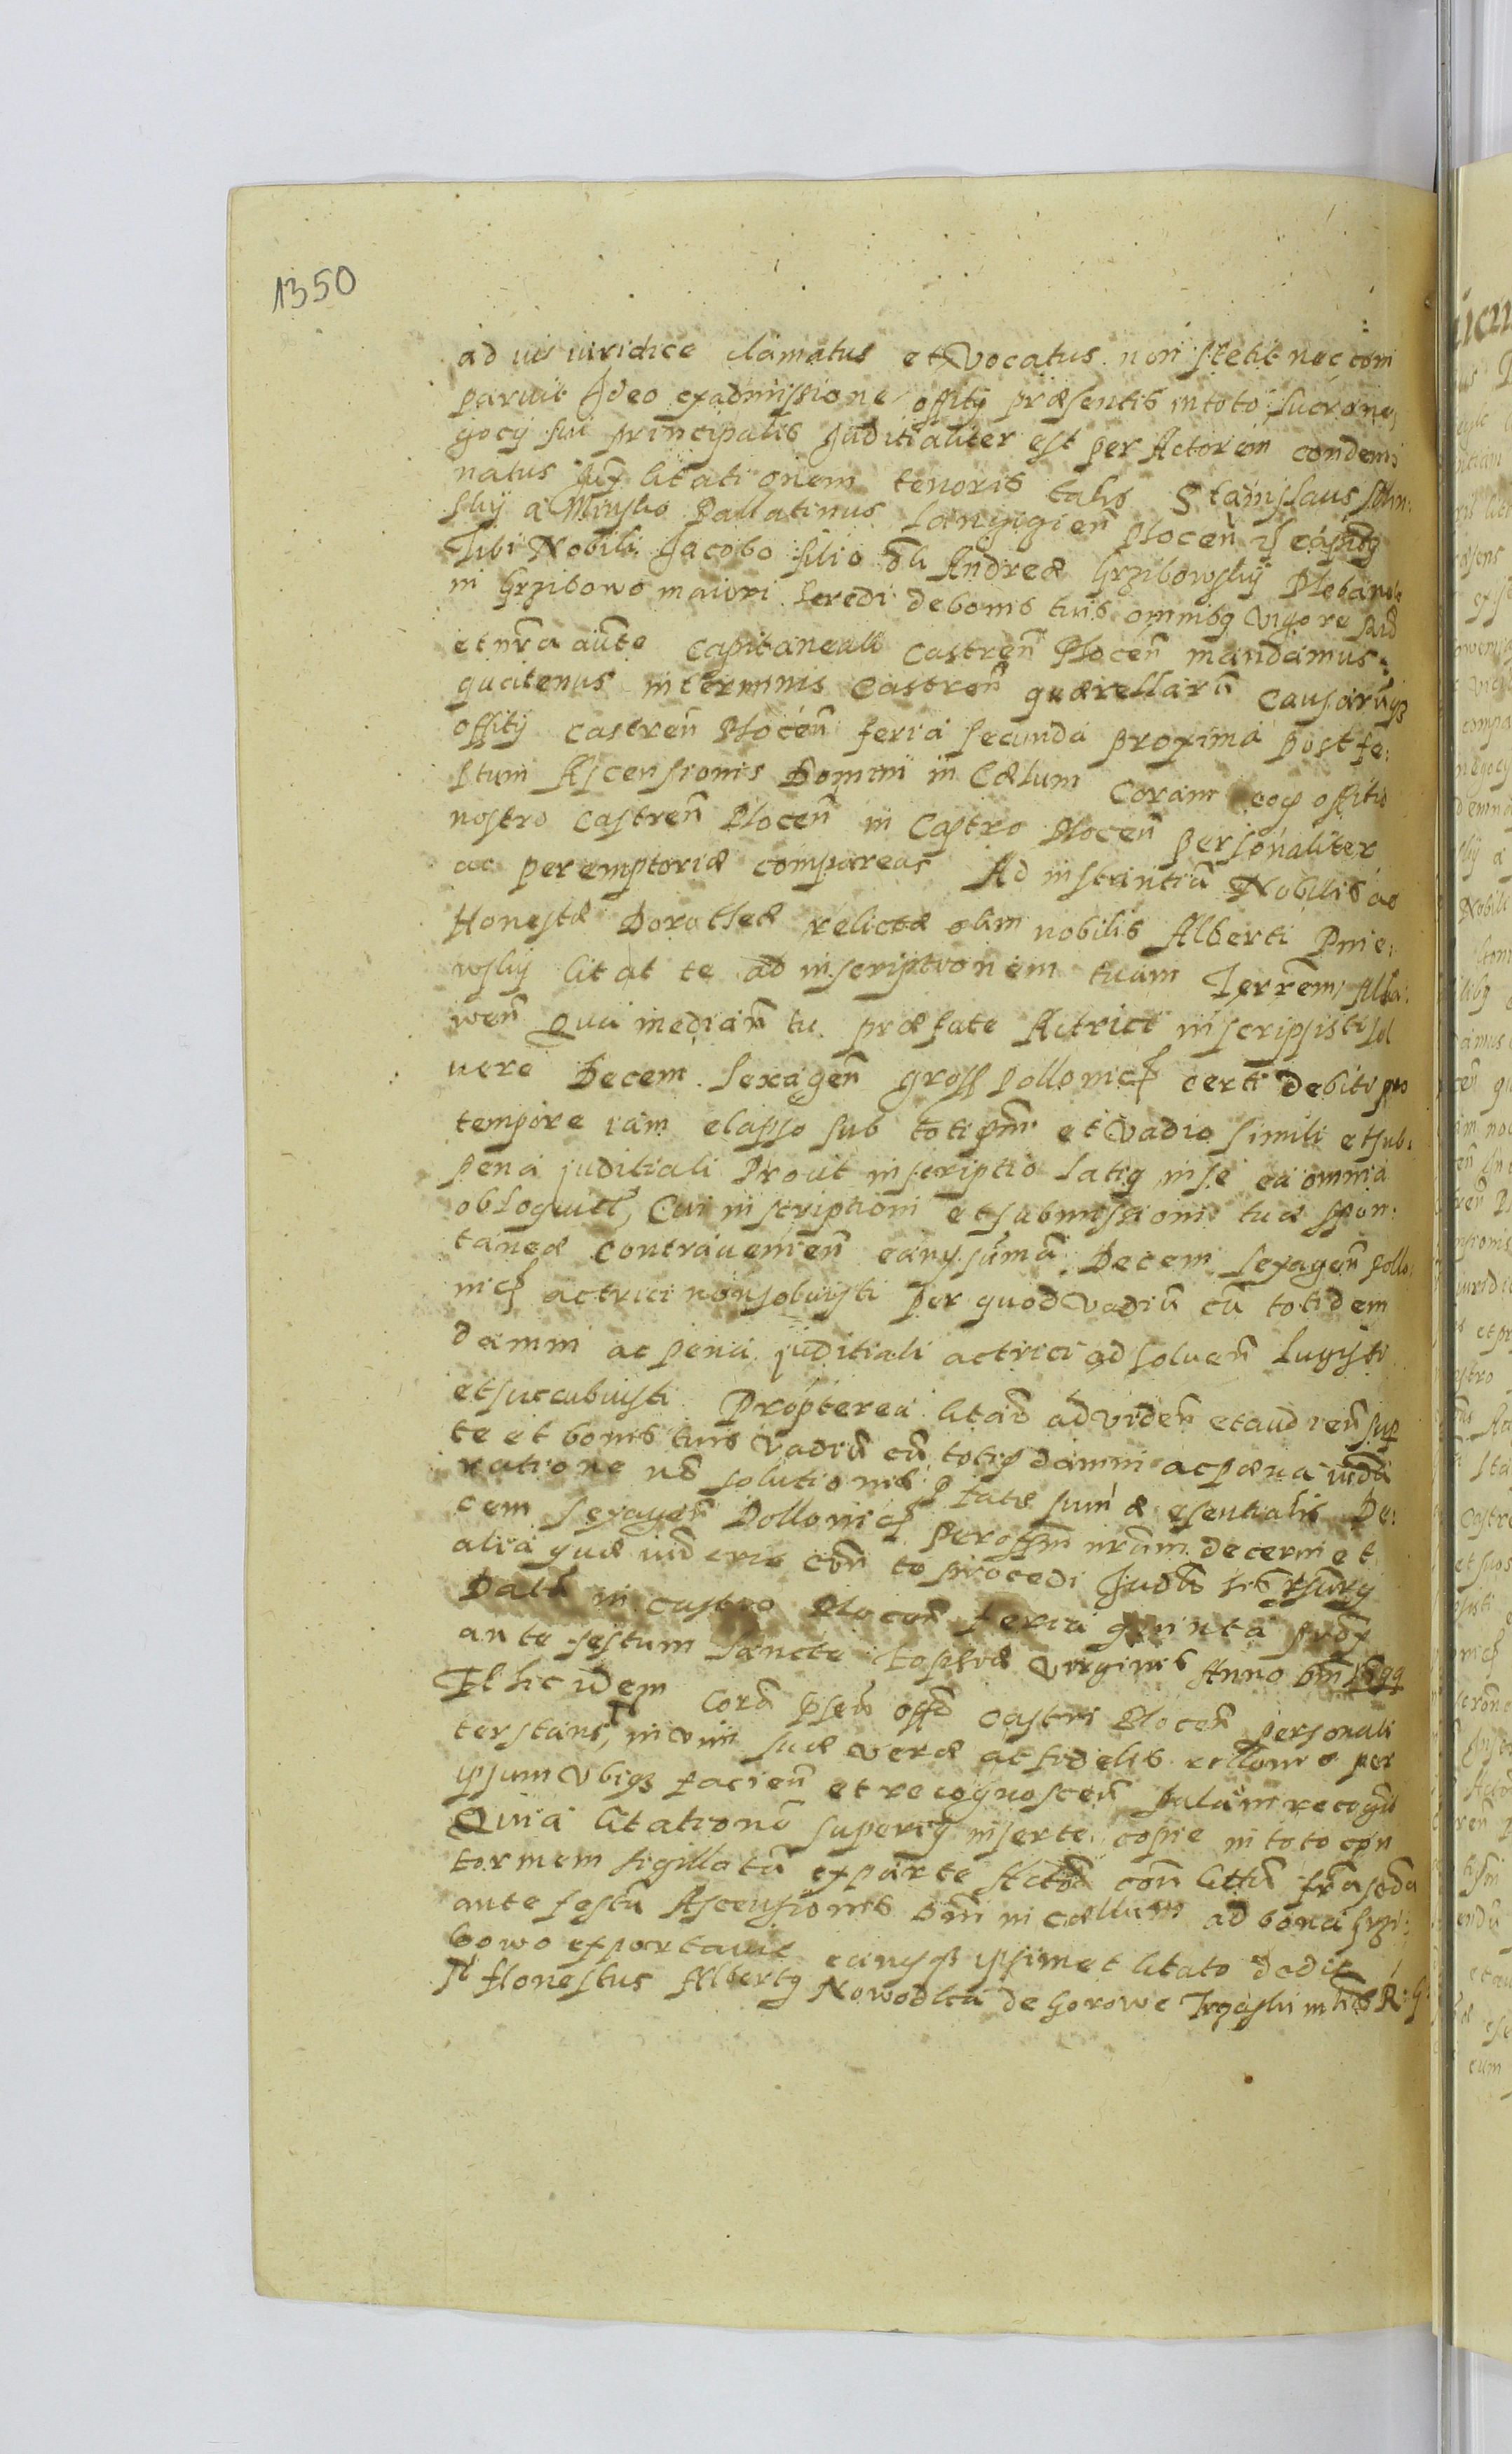 1350
ad ius iuridice clamatus et Vocatus non stetit nec com
paruit Ideo ex admissione offitÿ præsentis in toto lucro ne
gocÿ sui principalis Juditialiter est per Actorem condem
natus Jux citationem tenoris talis Stanislaus
skÿ a Minsko Pallatinus Lanczÿcien Plocen
Tibi Nobili Jacobo filio olī Andreæ Grzibowskÿ Plebani
in Grzibowo maiori heredi de bonis tuis omnibq Vigore
et nrā aūte Capitaneali Castren̄ Plocen̄ mandamus
quatenus in terminis Castren̄ quærellarū Causarūqz
offitÿ Castren̄ Plocen̄ feria secunda proxima post fe:
stum Ascensionis Domini in Cælum Coram eoq offitio
nostro Castren̄ Plocen̄ in Castro Plocen̄ personaliter
ac peremptoriæ compareas Ad instantiā Nobilis ac
Honestæ Dorotheæ relictæ olim nobilis Alberti Pnie:
wskÿ citat te ad inscriptionem tuam Terrem
wen̄ Qua median̄ tu præfate Actrici inscripsisti sol
uere Decem sexagen̄ gross pollonicf certi debiti pro
tempore iam elapso sub toti et Vadio simili et sub
pena juditiali Prout inscriptio latiq in se ea omnia
obloquit, Cui inscriptioni et submissioni tuæ spon:
taneæ contraueniēn eanq sūmā Decem sexagen̄ pollo
nicf actrici non soluisti Per quod Vadiū cū totidem
damni ac pena juditiali actrici ad soluen̄ lugisti
et succubuisti Propterea citād ad viden̄ et audien̄ sup
te et bonis tuis Vadiū cū totiq damni ac pæna
ratione nō solutionis ptatæ summæ esentialis De:
cem sexagen̄ Pollonicf per offm nrum decerni et
alia quæ iud eris con̄ te procedi
Datt in castro Plocen̄ feria quinta prox
ante festum Sanctæ Sophiæ Virginis Anno Dm 1599
Et hic idem Corā psen̄ offō Castri Plocen̄ personali
ter stans, in vim suæ veræ ac fidelis rellonis per
ipsum Vbiqz facien̄ et recognoscen̄ palam recogn
Quia Citationē superiq inserte copie in toto con
formem sigillatā ex parte Actor con̄ Cittū
ante festū Ascensionis Dm̄ in Cællum ad bona Grzi:
bowo exportauit eanqz ipsimet citato dedit
Honestus Albertq Nowodka de Gorowe